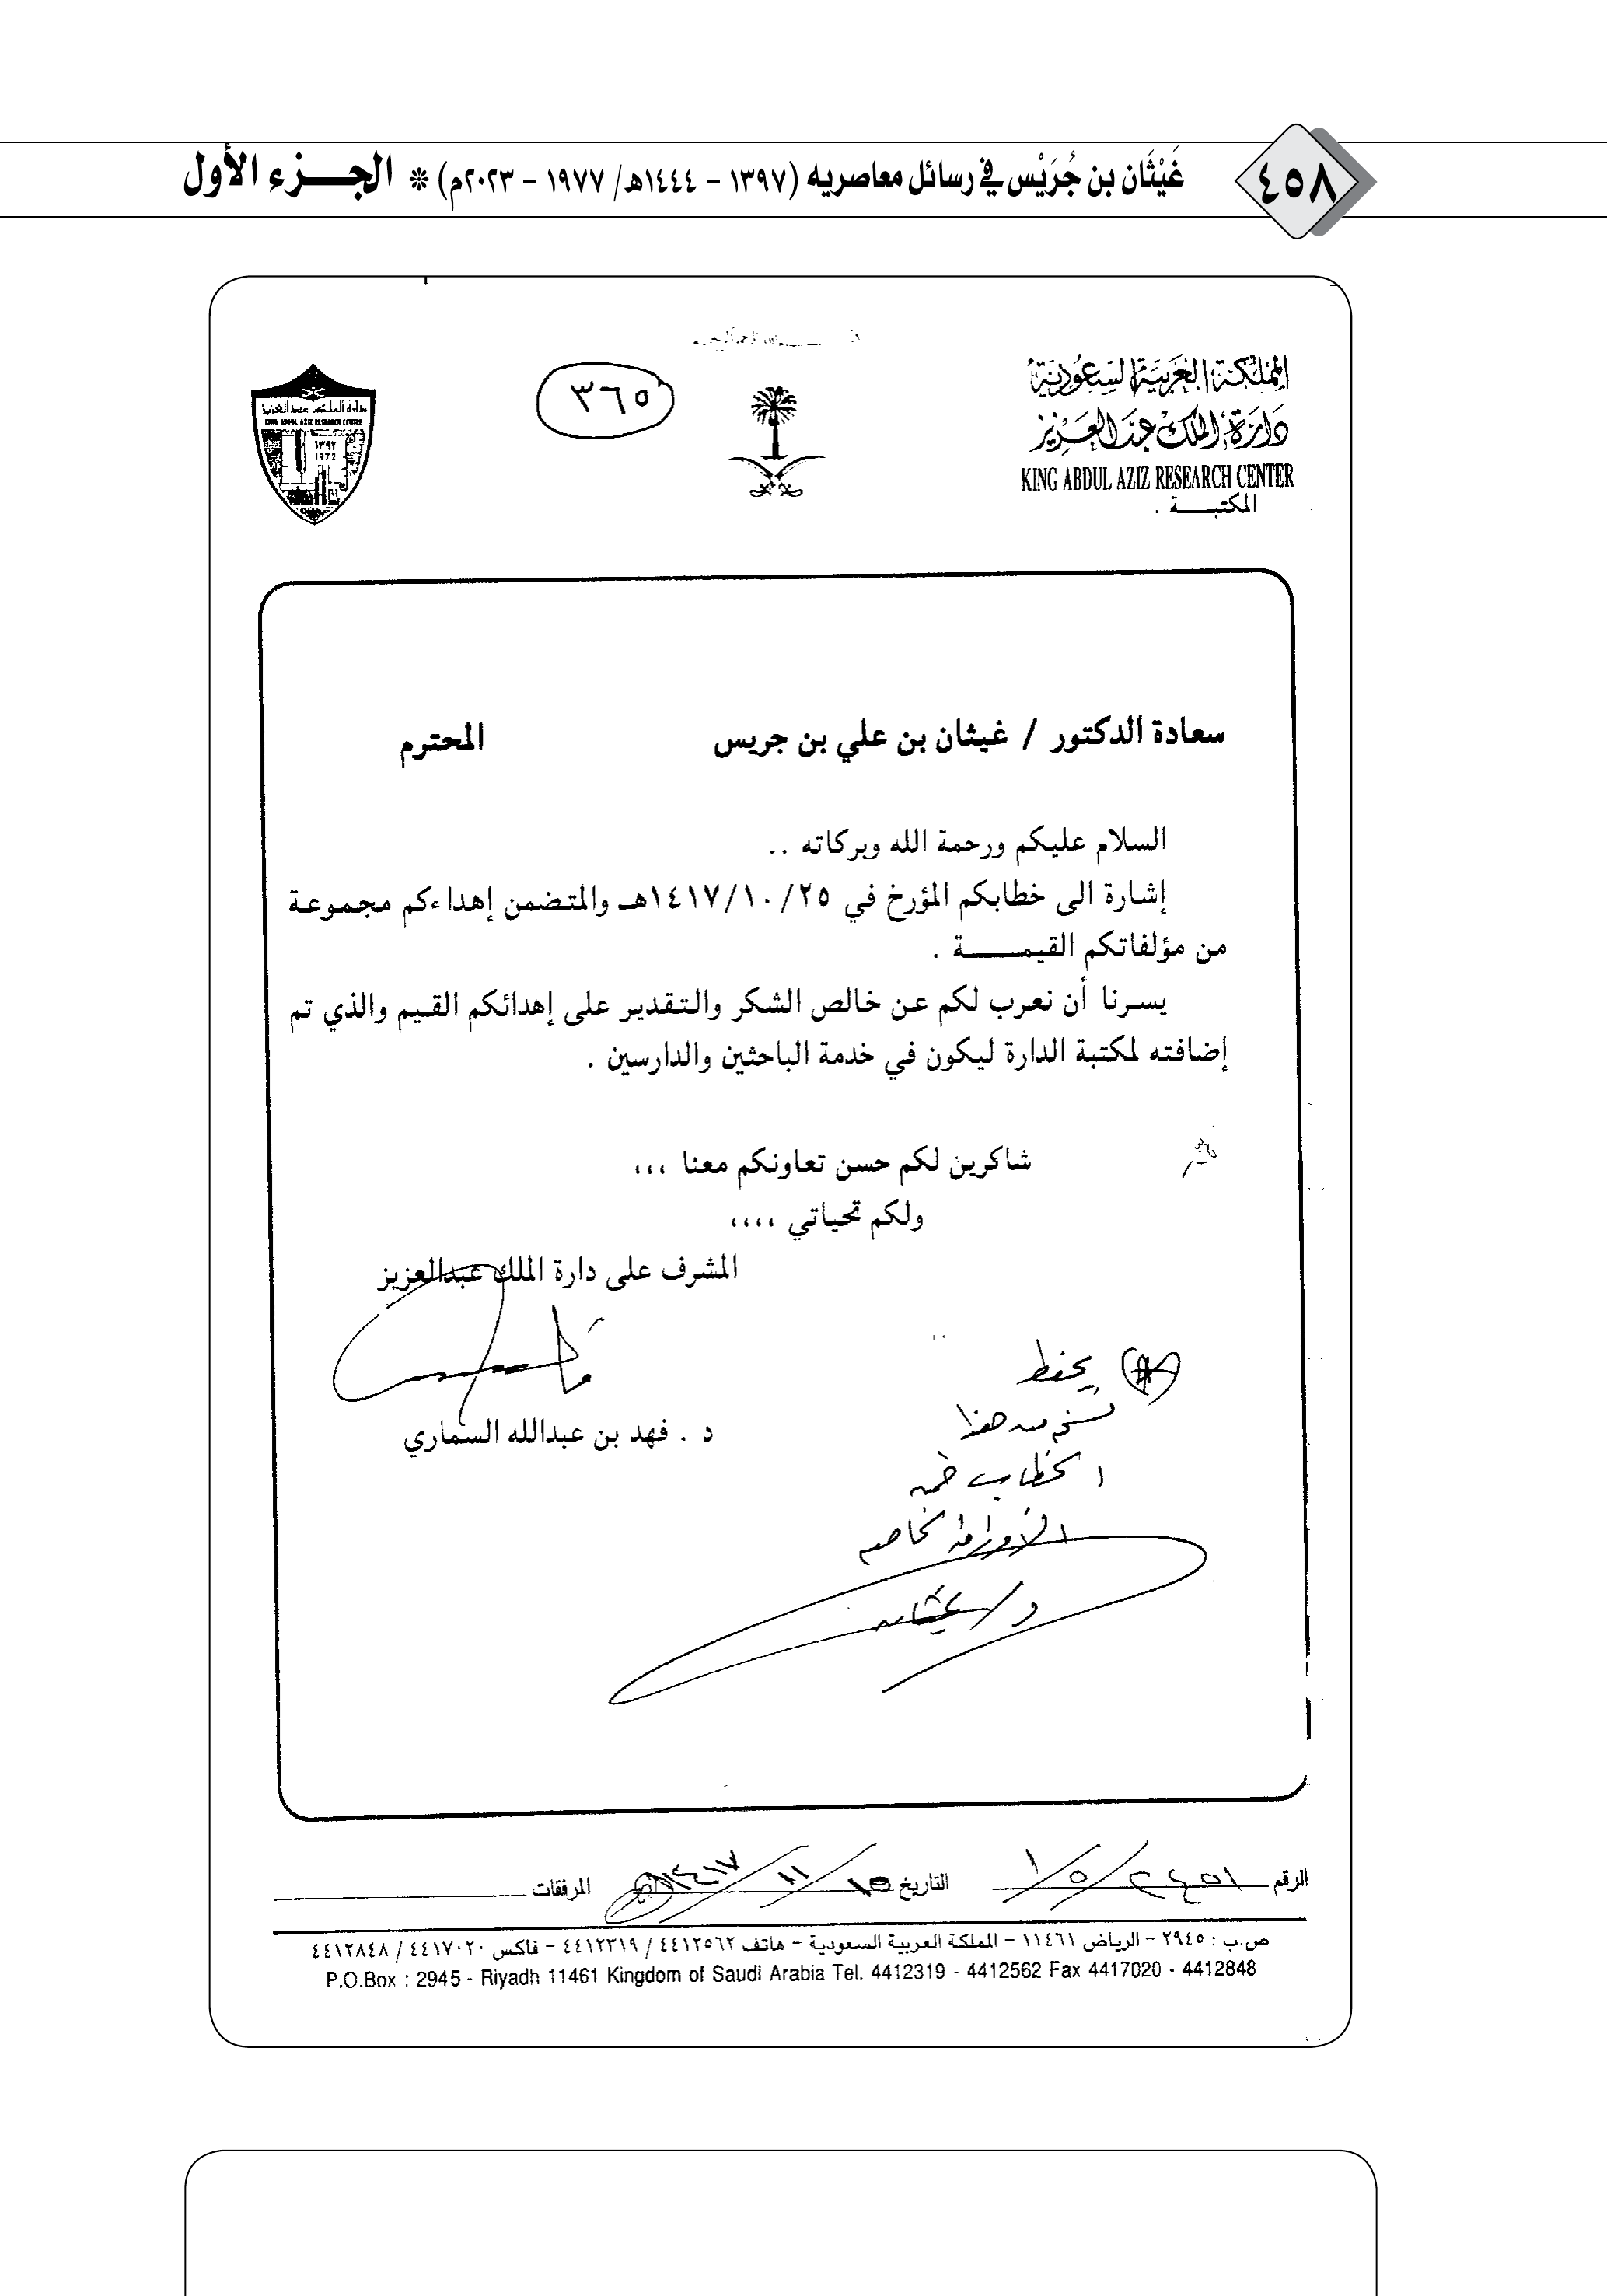 ٤٥٨
غَيْثَان بن جُرَيْس في رسائل معاصريه (١٣٩٧ - ١٤٤٤هـ/ ١٩٧٧ - ٢٠٢٣م) * الجـــزء الأول
المملكة العربية السعودية
دارة الملك عبد العزيز
KING ABDUL AZIZ RESEARCH CENTER
المكتبـــة .
٣٦٥
دارة الملك عبدالعزيز
KING ABDUL AZIZ RESEARCH CENTRE
١٣٩٢
1972
سعادة الدكتور / غيثان بن علي بن جريس المحترم
السلام عليكم ورحمة الله وبركاته ..
إشارة الى خطابكم المؤرخ في ١٤١٧/١٠/٢٥هـ والمتضمن إهداءكم مجموعة
من مؤلفاتكم القيمـــــة .
يسرنا أن نعرب لكم عن خالص الشكر والتقدير على إهدائكم القيم والذي تم
إضافته لمكتبة الدارة ليكون في خدمة الباحثين والدارسين .
شاكرين لكم حسن تعاونكم معنا ،،،
ولكم تحياتي ،،،،
المشرف على دارة الملك عبدالعزيز
د . فهد بن عبدالله السماري
يحفظ
نسخه من هذا
الخطاب ضمن
الأوراق الخاصه
د/ غيثان
الرقم ٢٤٥١/٥/١ التاريخ ١٥/ ١١/ ١٤١٧ المرفقات
ص.ب : ٢٩٤٥ - الرياض ١١٤٦١ - المملكة العربية السعودية - هاتف ٤٤١٢٥٦٢ / ٤٤١٢٣١٩ - فاكس ٤٤١٧٠٢٠ / ٤٤١٢٨٤٨
P.O.Box : 2945 - Riyadh 11461 Kingdom of Saudi Arabia Tel. 4412319 - 4412562 Fax 4417020 - 4412848